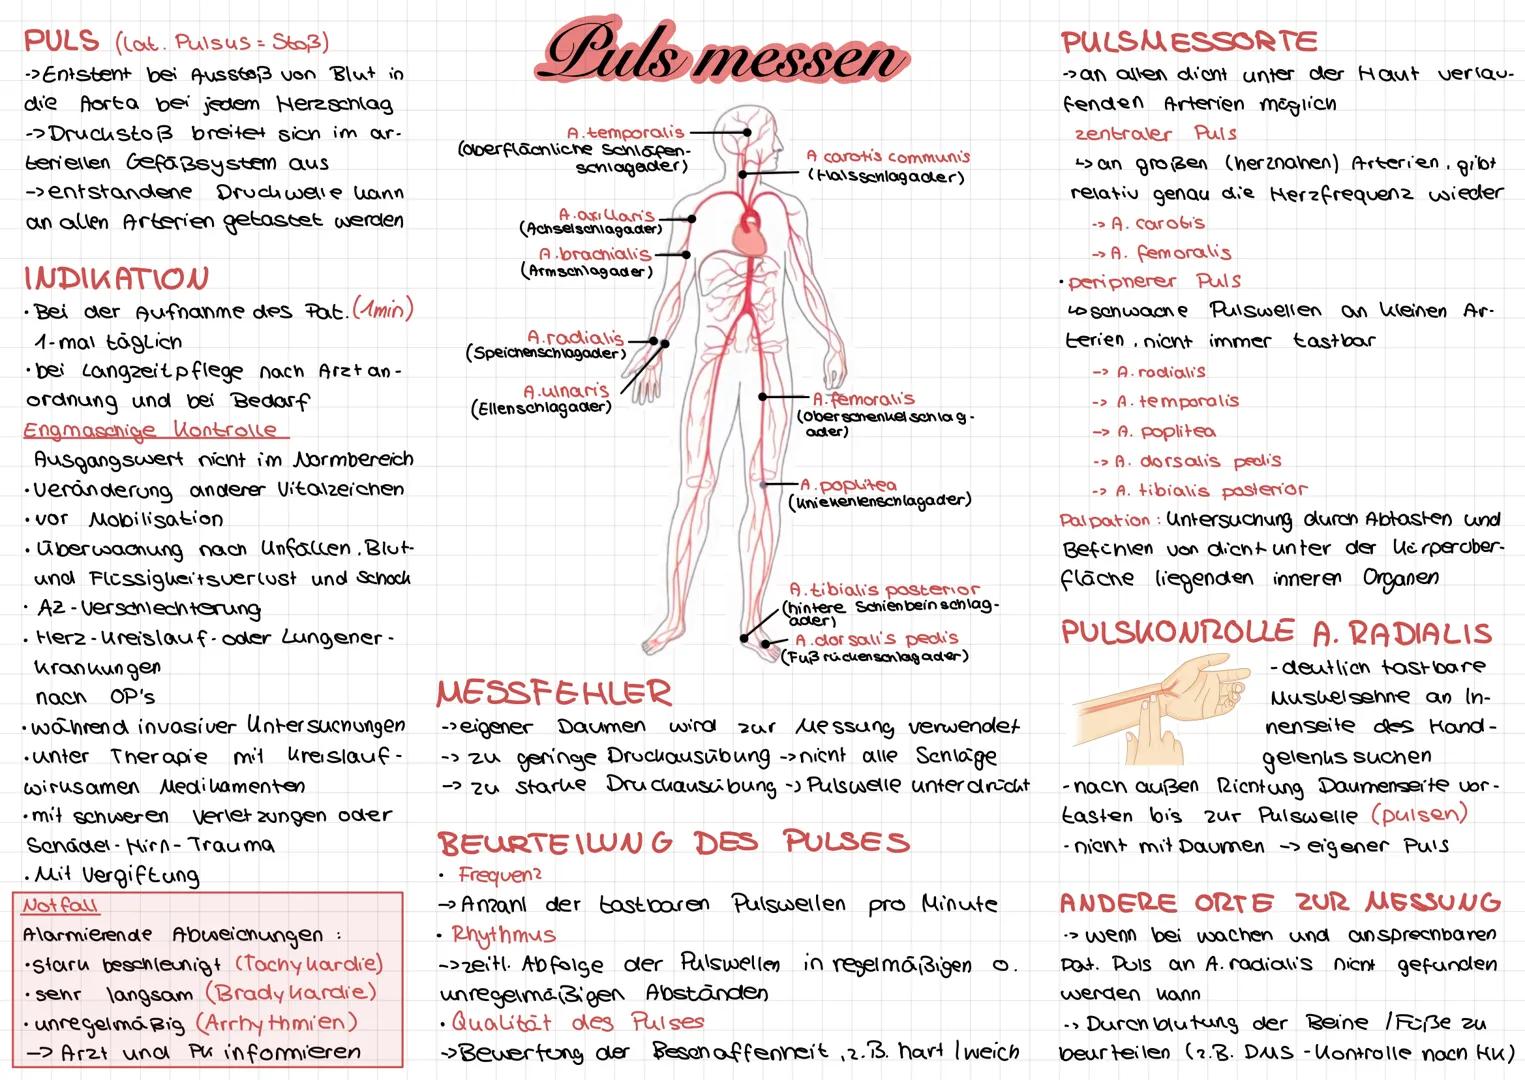 Puls messen
PULS (lat. Pulsus = Stoß)
->Entsteht bei Ausstoß von Blut in
die Aorta bei jedem Herzschlag
->Druckstoß breitet sich im ar-
teriellen Gefäßsystem aus
->entstandene Druckwelle kann
an allen Arterien getastet werden
INDIKATION
·Bei der Aufnahme des Pat. (1min)
1-mal täglich
·bei Langzeitpflege nach Arztan-
ordnung und bei Bedarf
Engmaschige Kontrolle
Ausgangswert nicht im Normbereich
·Veränderung anderer Vitalzeichen
·vor Mobilisation
·Überwachung nach Unfällen, Blut-
und Flüssigkeitsverlust und Schock
·AZ-Verschlechterung
·Herz-Kreislauf- oder Lungener-
krankungen
nach OP's
·während invasiver Untersuchungen
·unter Therapie mit kreislauf-
wirksamen Medikamenten
·mit schweren Verletzungen oder
Schädel-Hirn-Trauma
·Mit Vergiftung
Notfall
Alarmierende Abweichungen:
·stark beschleunigt (Tachykardie)
·sehr langsam (Bradykardie)
·unregelmäßig (Arrhythmien)
-> Arzt und PK informieren
A.temporalis
(oberflächliche Schläfen-
schlagader)
A carotis communis
(Halsschlagader)
A.axillaris
(Achselschlagader)
A.brachialis
(Armschlagader)
A.radialis
(Speichenschlagader)
A.ulnaris
(Ellenschlagader)
A.femoralis
(Oberschenkelschlag-
ader)
A.poplitea
(Kniekehlenschlagader)
A.tibialis posterior
(hintere Schienbeinschlag-
ader)
A.dorsalis pedis
(Fußrückenschlagader)
MESSFEHLER
->eigener Daumen wird zur Messung verwendet
-> zu geringe Druckausübung -> nicht alle Schläge
-> zu starke Druckausübung -> Pulswelle unterdrückt
BEURTEILUNG DES PULSES
· Frequenz
->Anzahl der tastbaren Pulswellen pro Minute
· Rhythmus
->zeitl. Abfolge der Pulswellen in regelmäßigen o.
unregelmäßigen Abständen
·Qualität des Pulses
->Bewertung der Beschaffenheit, z.B. hart/weich
PULSMESSORTE
->an allen dicht unter der Haut verlau-
fenden Arterien möglich
zentraler Puls
↳an großen (herznahen) Arterien, gibt
relativ genau die Herzfrequenz wieder
-> A. carotis
-> A. femoralis
·peripherer Puls
↳schwache Pulswellen an kleinen Ar-
terien, nicht immer tastbar
-> A. radialis
-> A. temporalis
-> A. poplitea
-> A. dorsalis pedis
-> A. tibialis posterior
Palpation: Untersuchung durch Abtasten und
Befühlen von dicht unter der Körperober-
fläche liegenden inneren Organen
PULSKONROLLE A. RADIALIS
-deutlich tastbare
Muskelsehne an In-
nenseite des Hand-
gelenks suchen
-nach außen Richtung Daumenseite vor-
tasten bis zur Pulswelle (pulsen)
-nicht mit Daumen -> eigener Puls
ANDERE ORTE ZUR MESSUNG
-> wenn bei wachen und ansprechbaren
Pat. Puls an A. radialis nicht gefunden
werden kann
-> Durchblutung der Beine /Füße zu
beurteilen (z.B. DMS-Kontrolle nach HK)